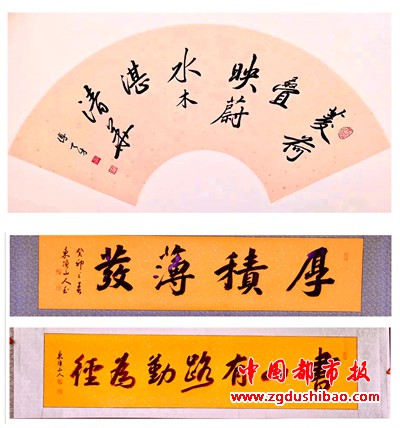 菱荷疊映蔚水木湛清華
厚積薄發
癸卯之春
書山有路勤為徑
中国都市报
www.zgdushibao.com